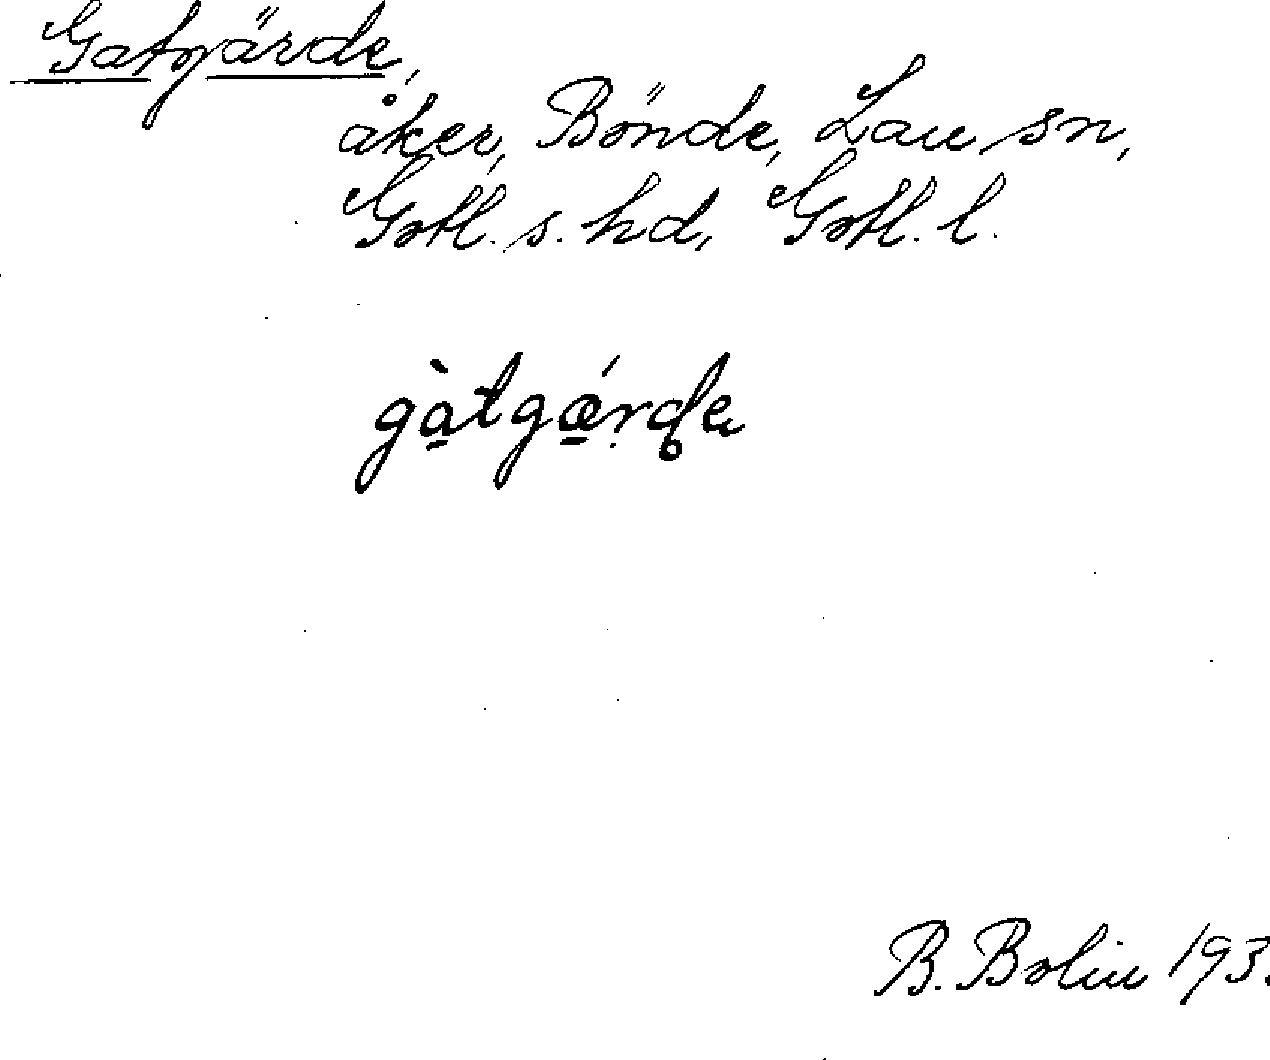 Gatgärde,
åker, Bönde, Lau sn,
Gotl. s. hd, Gotl. l.
B. Bolin 193